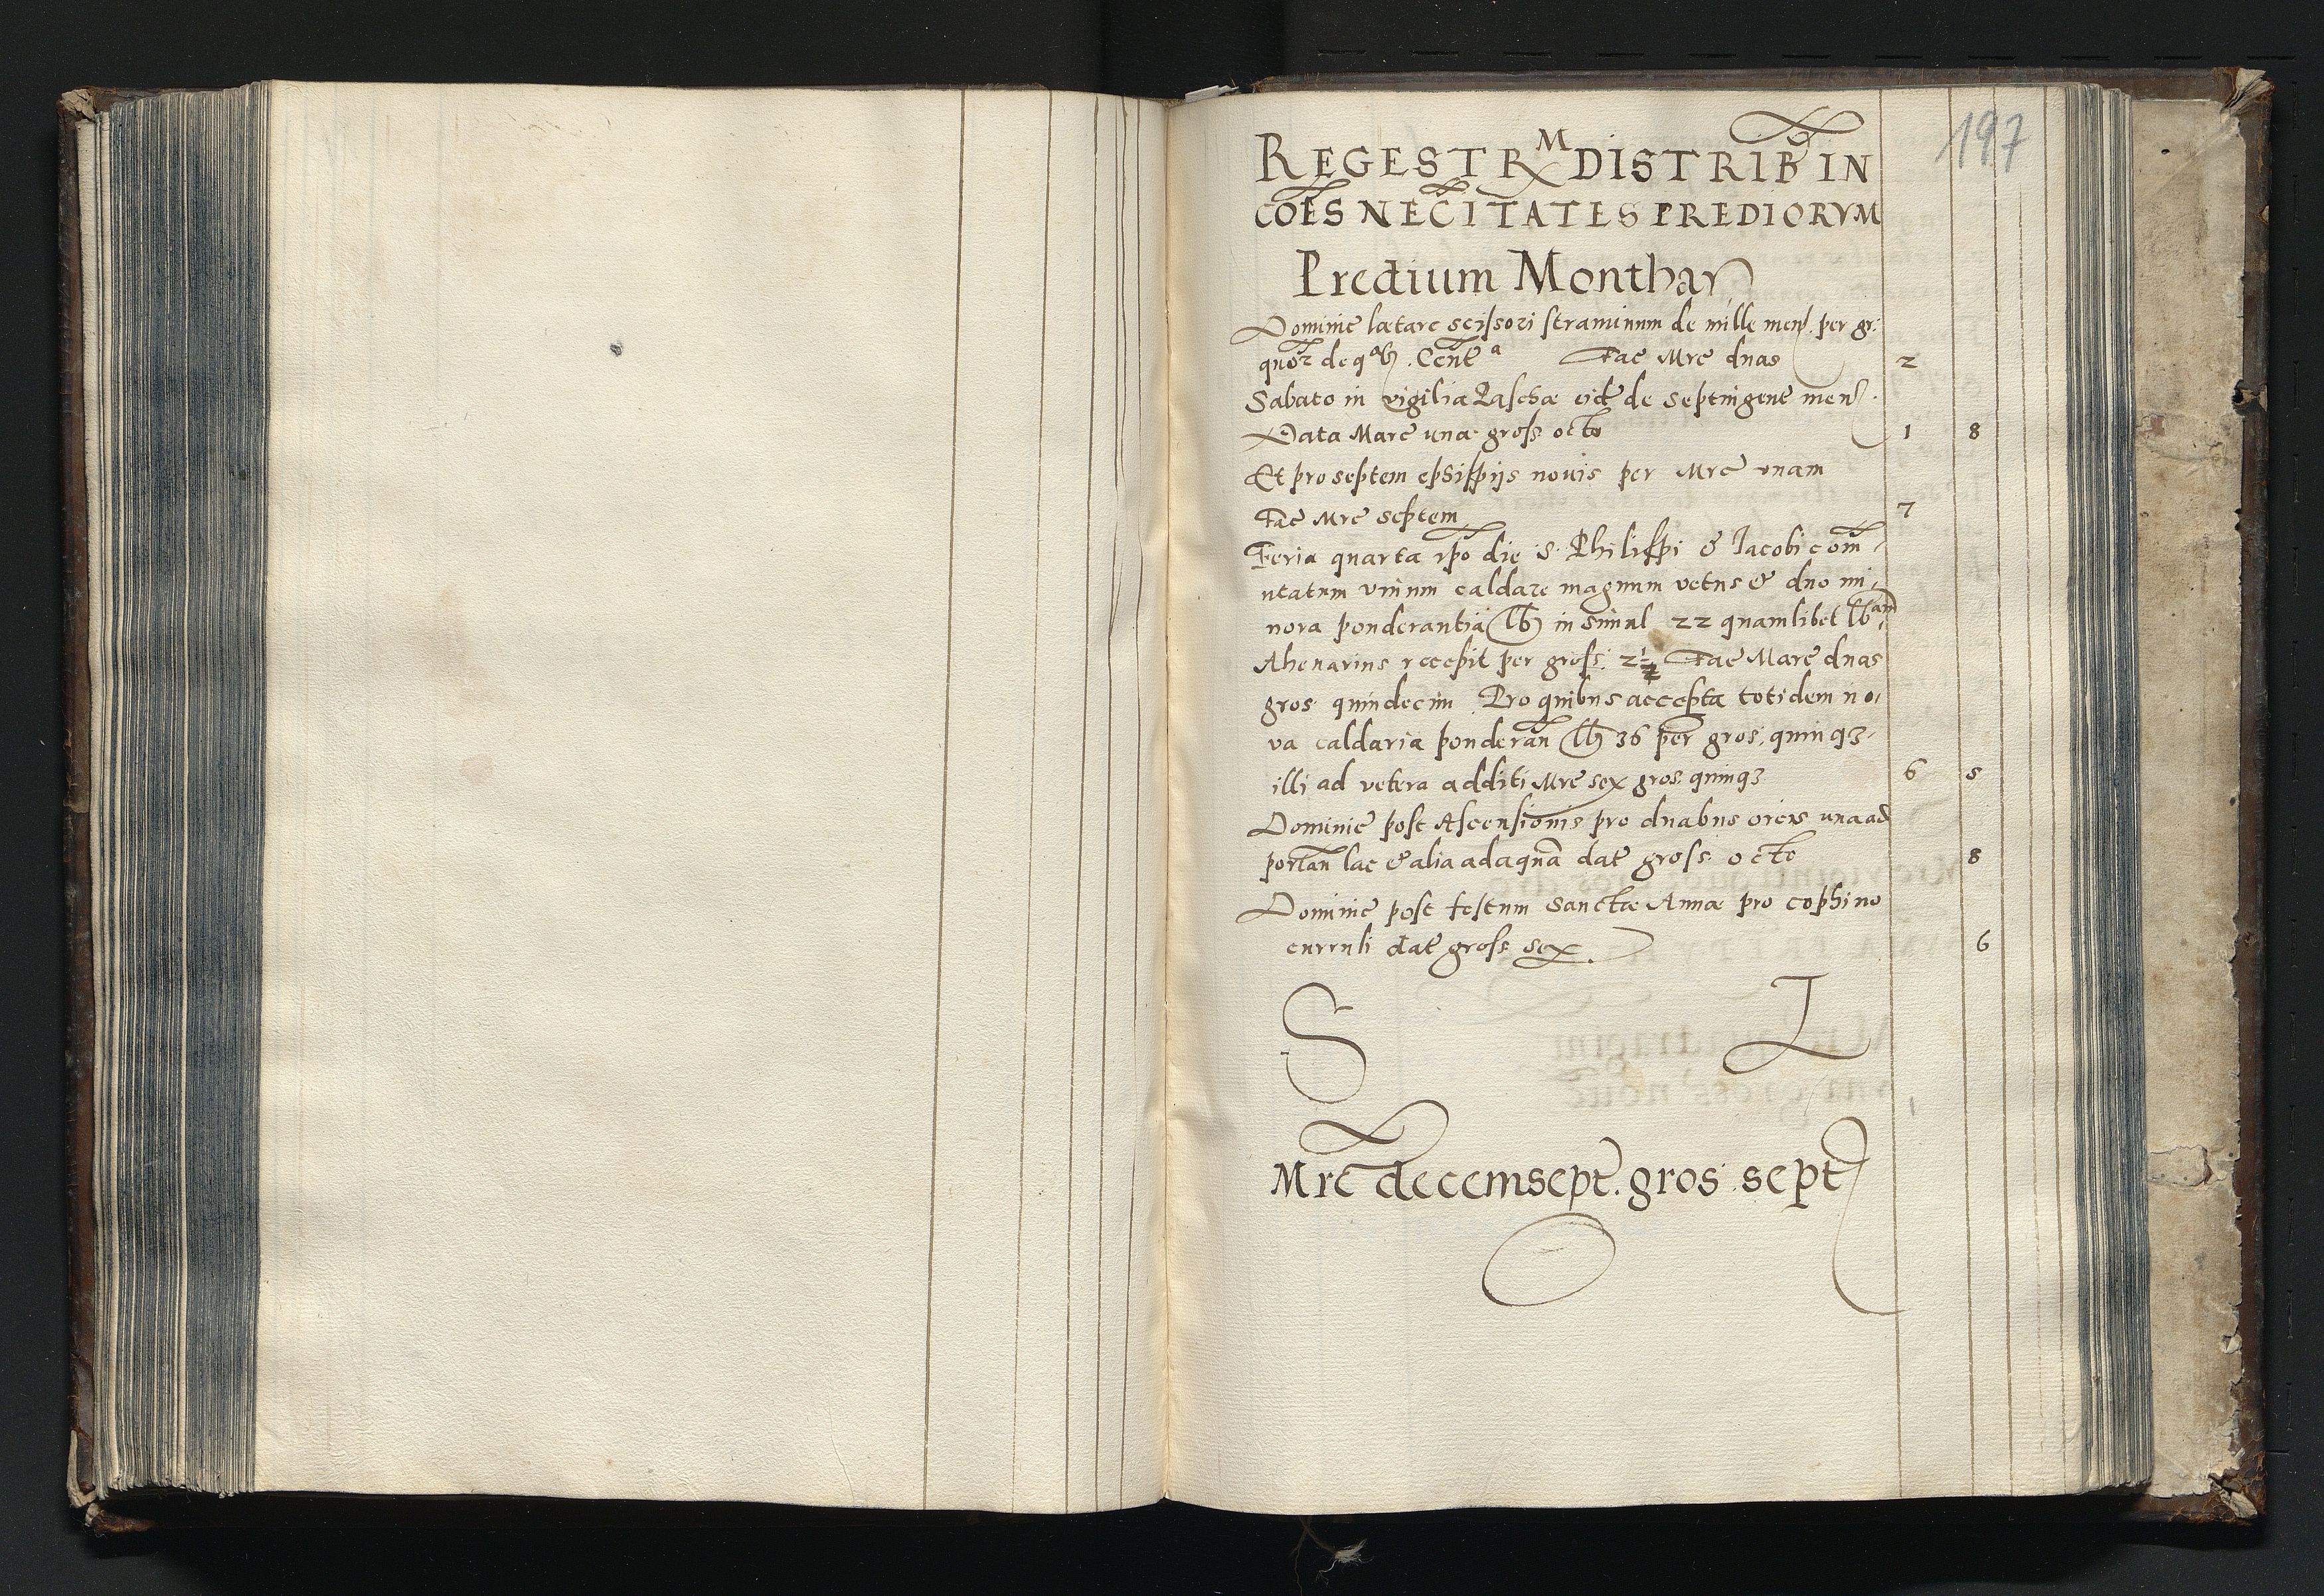 197
REGESTRM DISTRIB IN
COES NECITATES PREDIORVM
Predium Monthaŋ
Dominic̄ lætare scissori straminum de mille men. per gr:
quor de qlb. Centa Fac Mrc duas 2
Sabato in vigilia Paschæ eid de septingent men.
Data Marc una gross octo 1 8
Et pro septem ephippijs novis per Mrc unam
Fac Mrc septem 7
Feria quarta ipo die S. Philippi & Jacobi com-
utatum vnum caldare magnum vetus & duo mi-
nora ponderantia lb insimul 22 quamlibet lbam
Ahenarius recepit per gross. 2½ Fac Marc duas
gros quindecim Pro quibus accepta totidem no-
va caldaria ponderan lb 36 per gros. quinqꝫ
illi ad vetera additi Mrc sex gros quinqꝫ 6 5
Dominic post Ascensionis pro duabus orcis una ad
portan lac & alia ad aquā dat gross octo 8
Dominic post festum Sanctæ Annæ pro cophino
curruli dat gross sex. 6
S L
Mrc decemsept. gros. sept